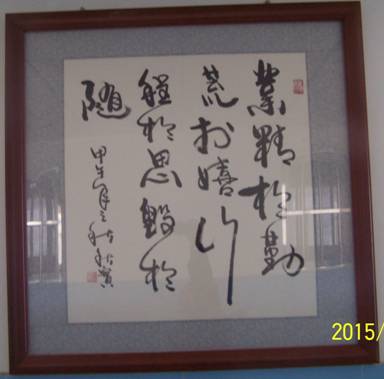 業精於勤
荒於嬉行
成於思毀於
隨
甲午
2015/